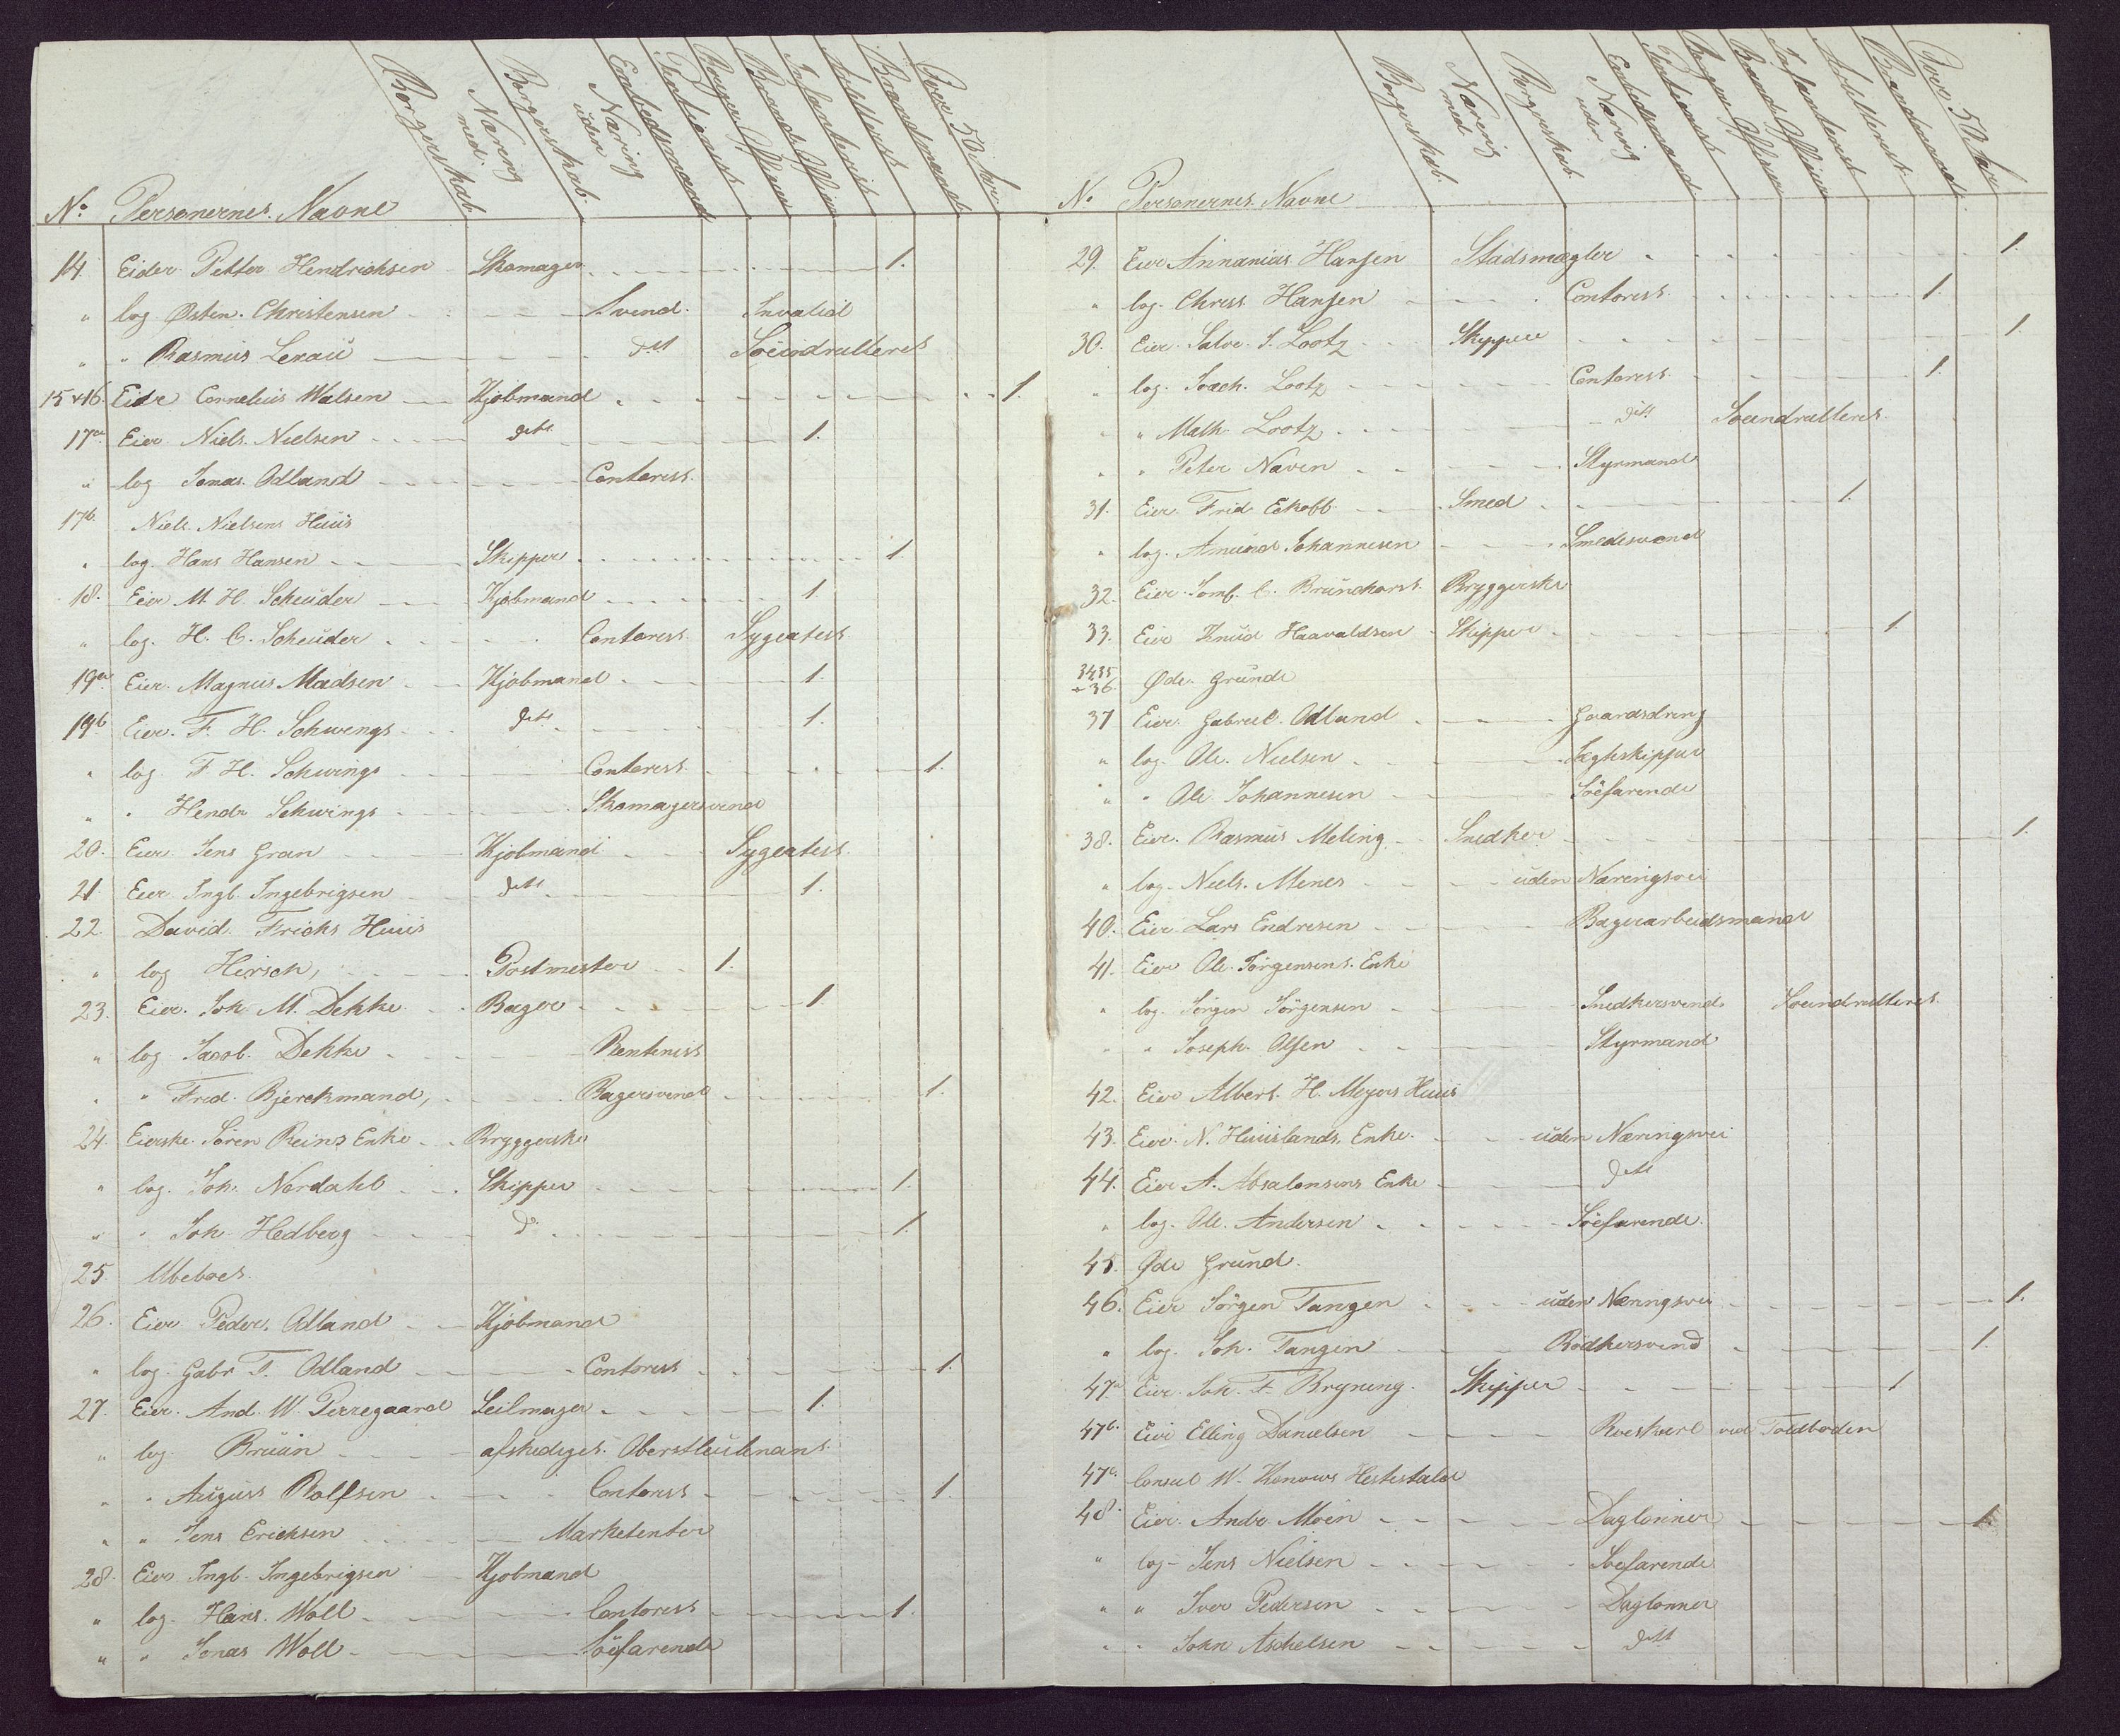 No Personernes Navne
Borgerskab.
Næring med.
Borgerskab.
Næring uden
Embedsmænd
Borger Officier
Brand Officier
Infanterist
Artillerist
Brandmænd
Over 50 Aar
14. Eider Petter Hendrichsen Skomager 1.
" log Østen Christensen Svend. Invalid
" " Rasmus Lexau dtt Søeindrulleret
15 + 16. Eidr Cornelius Walsen Kjøbmand 1.
17a Eier Niels Nielsen dtt 1.
" log Jonas Odland Contorist.
17b. Niels Nielsens Huus
" log. Hans Hansen Skipper 1.
18. Eier M. H. Scheuder Kjøbmand 1.
" log. H. C. Scheuder Contorist Sygeatest
19a Eier. Magnus Madsen Kjøbmand 1.
19b Eier. F. H. Schwengs dtt 1.
" log. F. H. Schwings Contorist. 1.
" " Hendr. Schwings Skomagersvend
20. Eier Jens Gran Kjøbmand Sygeatest
21. Eier Ingb. Ingebrigsen dtt 1.
22 David Frichs Huus
" log Hirsch, Postmester 1.
23. Eier. Joh. M. Dekke Bager 1
" log Jacob. Dekke Rentenist
" " Fred. Bjerckmand, Bagersvend 1.
24. Eierske Søren Reins Enke Bryggerske
" log. Joh. Nordahl Skipper 1.
" " Joh. Hedberg do 1.
25. Ubeboet.
26. Eier. Peder. Odland Kjøbmand
" log. Gabr T. Odland Contorist 1.
27. Eier. And. W. Pirregaard Seilmager 1.
" log Bruun afskediget Oberstleutenant
" " August Rolfsen Contorist 1.
" " Jens Ericksen Marketenter
28. Eier Ingb. Ingebrigsen Kjøbmand
" log. Hans. Woll Contorist 1.
" " Jonas Woll Søefarende
No Personernes Navne
Borgerskab.
Næring med
Borgerskab.
Næring uden
Embedsmænd
Borger Officier
Brand Officier
Infanterist
Artillerist
Brandmænd
Over 50 Aar
29. Eier Annanias Hansen Stadsmægler 1.
" log. Christ Hansen Contorist 1.
30. Eier. Salve. J. Lootz Skipper 1.
" log. Joach. Lootz Contorist 1.
" " Math. Lootz dtt Søeindrulleret
" " Peter Naven Styrmand
31. Eier Frid. Eckoff Smed 1.
" log. Amund Johannesen Smedesvend
32. Eier. Jomf. C. Brunchorst Bryggerske
33. Eier Knud Haavaldsen Skipper 1.
34 35 + 36. Øde. Grunde
37 Eier. Gabriel. Odland Gaardsdreng
" log. Ole. Nielsen Jægtskipper
" " Ole Johannesen Søefarende
38. Eier. Rasmus Meling Snedker 1.
" log. Niels. Menes uden Næringsvei
40. Eier Lars Endresen Bagerarbeidsmand
41. Eier Ole. Jørgensens. Enke
" log. Jørgen Jørgensen Snedkersvend Søeindrulleret
" " Joseph. Olsen Styrmand
42. Eier Albert. H. Meyers Huus
43. Eier. N. Huuslands. Enke. uden Næringsvei
44. Eier A. Absalonsens Enke dtt
" log. Ole. Andersen Søefarende.
45. Øde Grund.
46. Eier Jørgen Tangen uden Næringsvei 1.
" log. Joh. Tangen Bødkersvend 1.
47a Eier. Joh. F. Bryning. Skipper 1
47b. Eier Elling Danielsen Roeskarl ved Toldboden
47c. Consul W. Konows Hestestald
48. Eier. Andr. Moen Daglønner 1.
" log Jens Nielsen Søefarende
" " Iver Pedersen Daglønner
" " John Aschelsen dtt